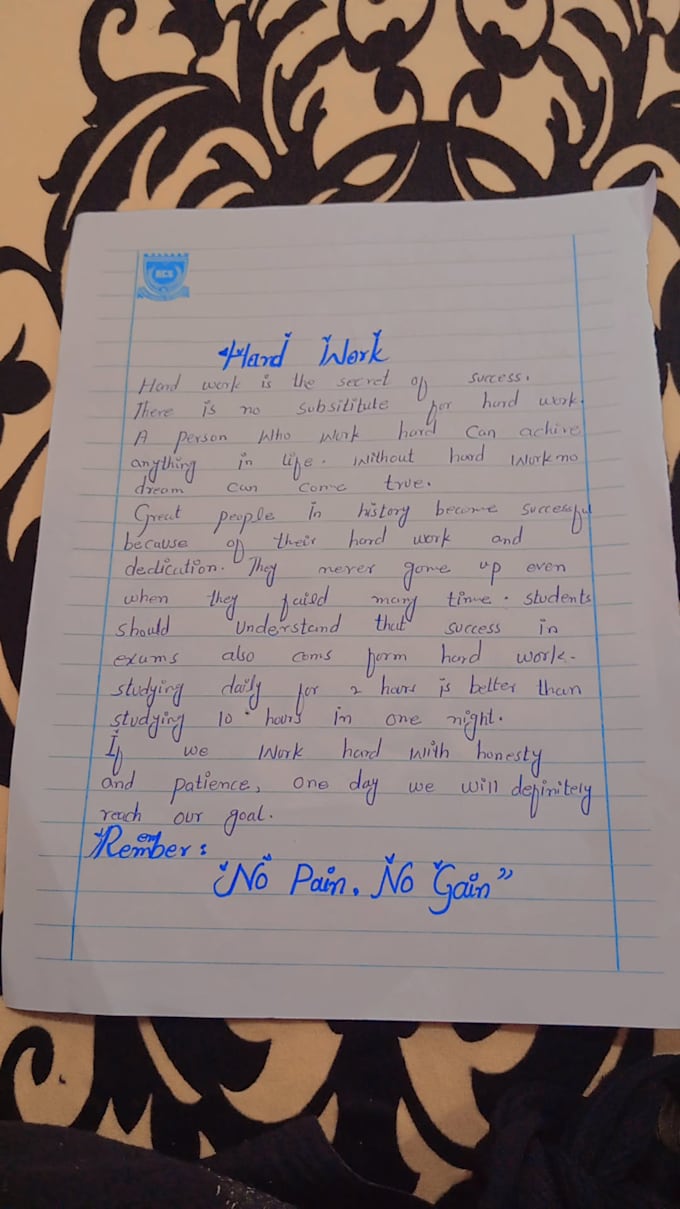 RCS
Hard Work
Hard work is the secret of success.
There is no subsititute for hard work.
A person Who work hard Can achive
anything in life. Without hard Work no
dream can come true.
Great people In history become successful
because of their hard work and
dedication. They never gome up even
when they faild many time. students
should Understand that success in
exams also coms form hard work.
studying daily for 2 hours is better than
studying 10 hours in one night.
If we Work hard With honesty
and patience, one day we will definitely
reach our goal.
Remember:
"No Pain. No Gain"